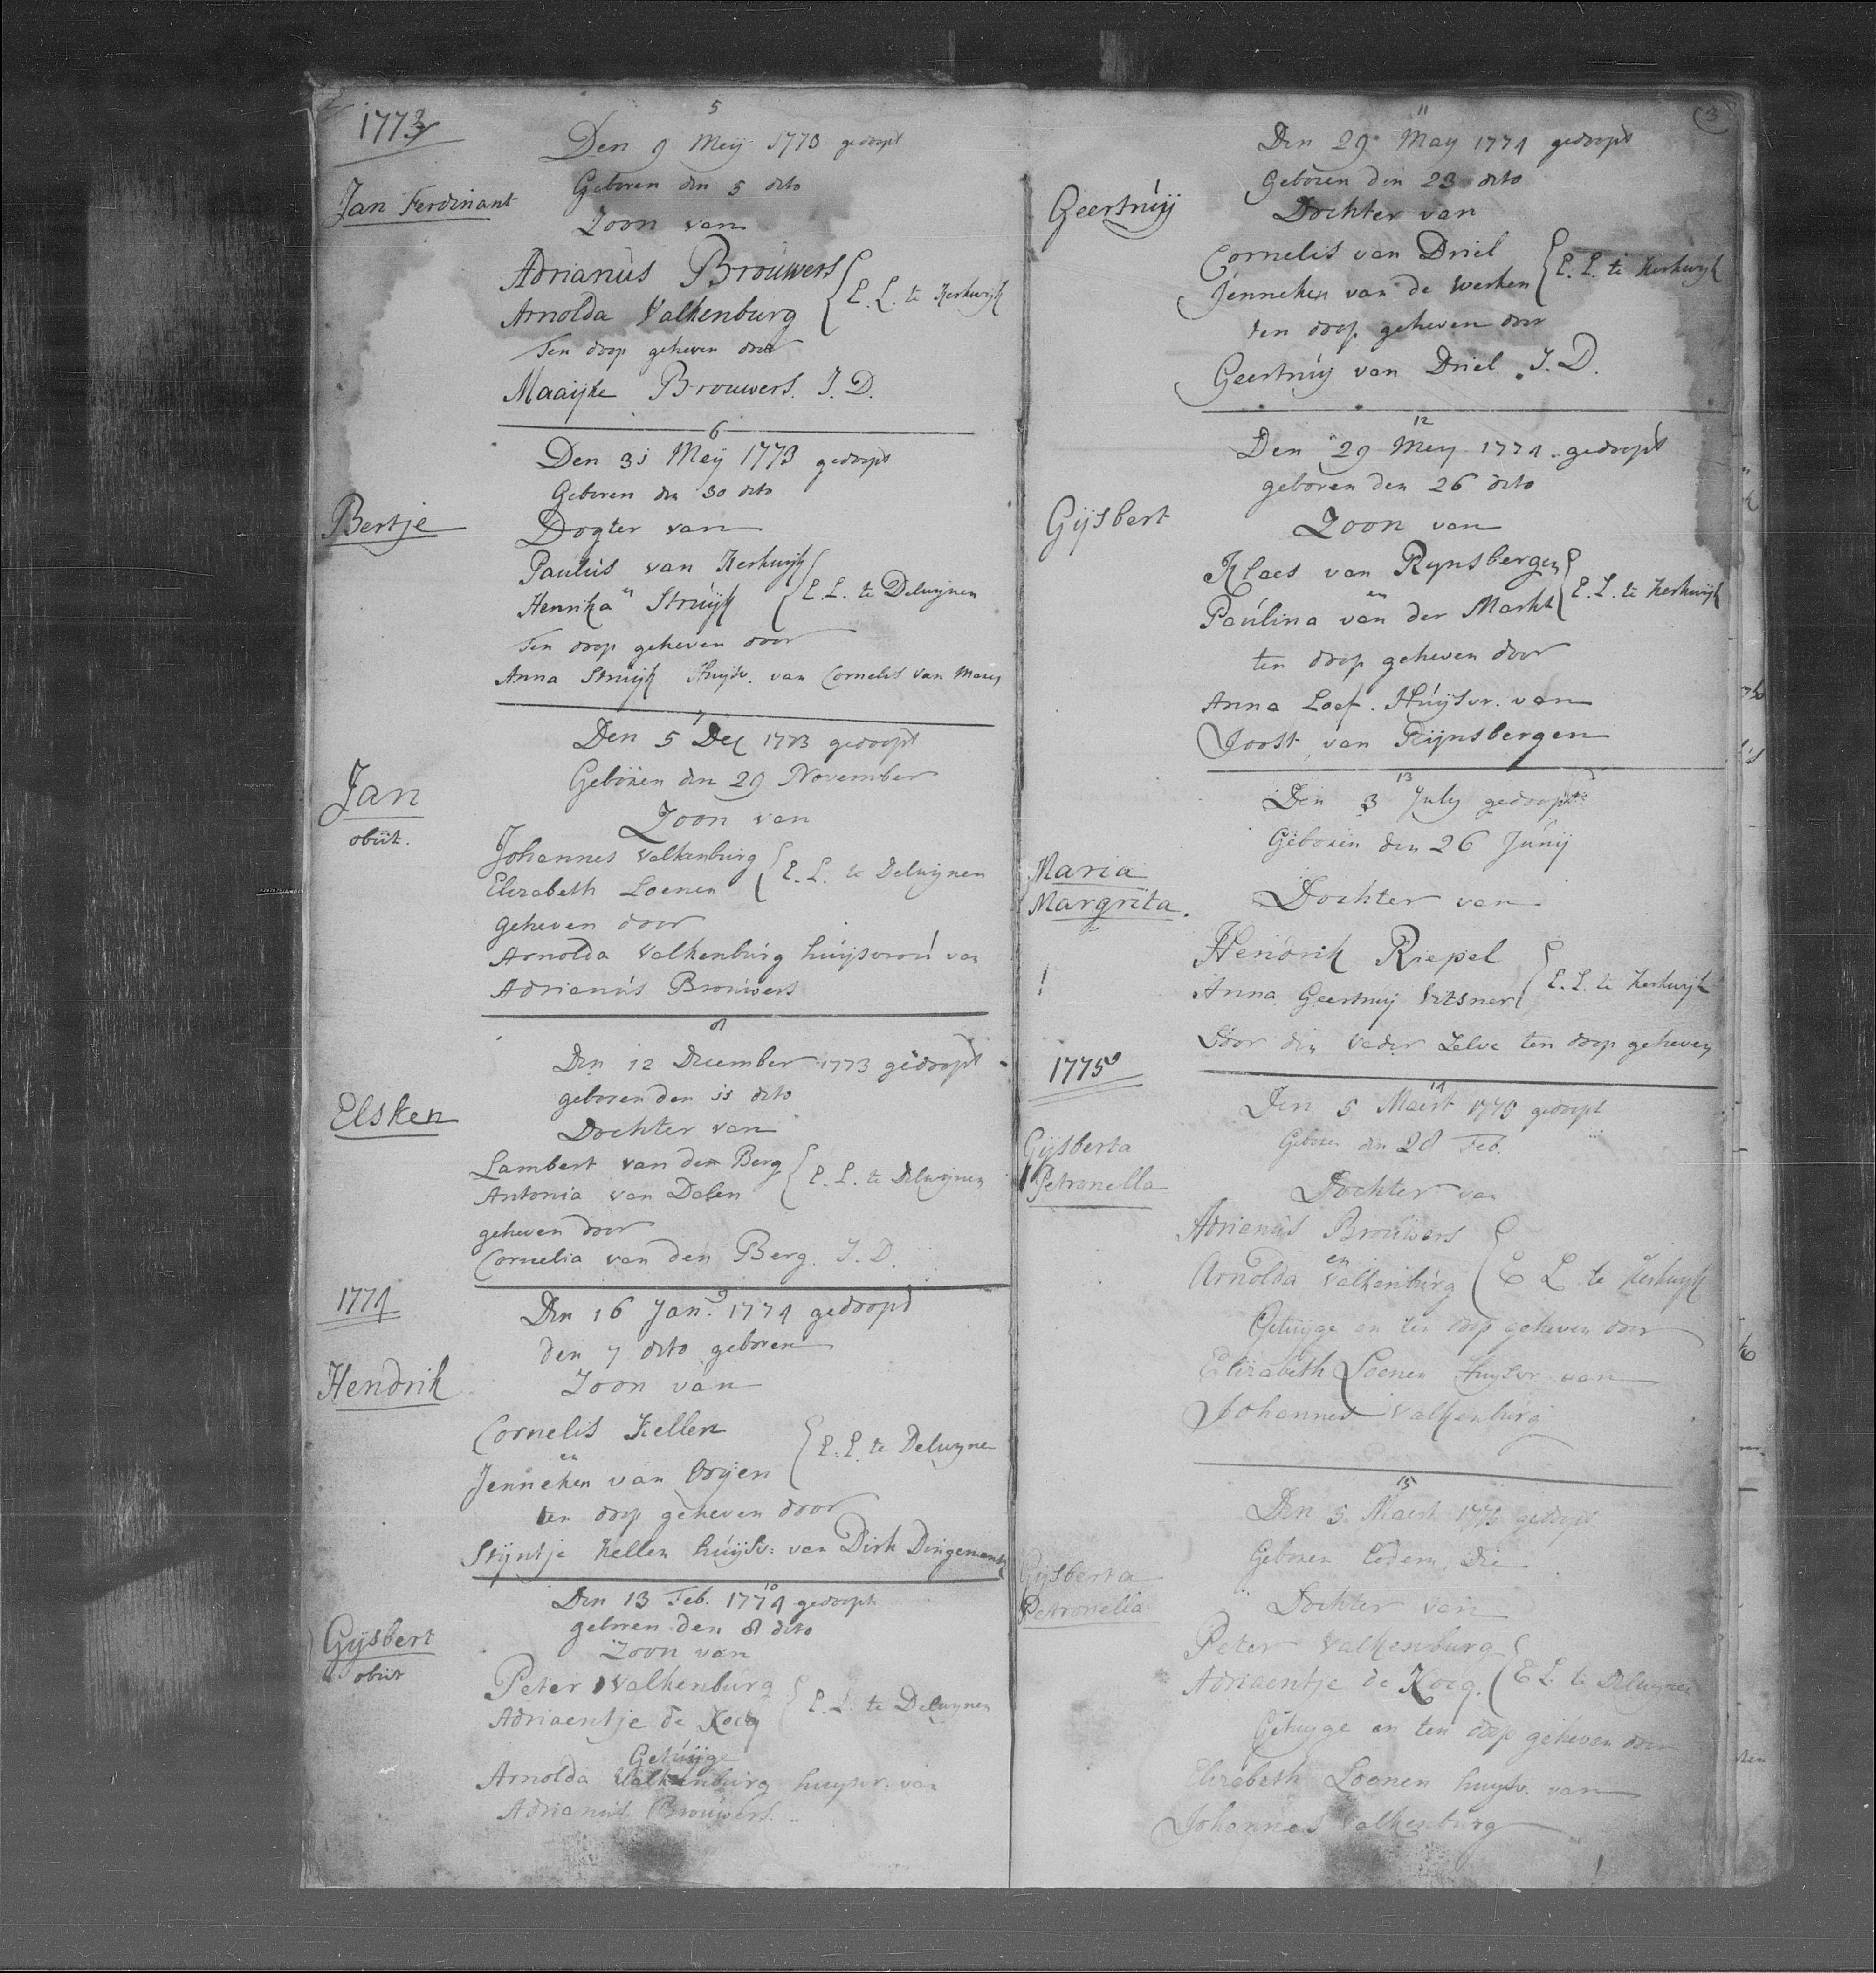 1773
5
Den 9 Meij 1773 gedoopt
Jan Ferdinant
Geboren den 5 dito
Zoon van
Adrianus Brouwers
Arnolda Valkenburg
E. L. te Kerkwijk
Ten doop geheven door
Maaijke Brouwers. J. D.
6
Den 31 Meij 1773 gedoopt
Geboren den 30 dito
Bertje
Dogter van
Paulus van Kerkwijk
en
Henrika Struijk
E. L. te Delwijnen
Ten doop geheven door
Anna Struijk Huijsv. van Cornelis van Maren
7
Den 5 Dec 1773 gedoopt
Geboren den 29 November
Jan
obiit.
Zoon van
Johannes Valkenburg
Elizabeth Loenen
E. L. te Delwijnen
geheven door
Arnolda Valkenburg huijsvrou van
Adrianus Brouwers
8
Den 12 December 1773 gedoopt
geboren den 11 dito
Elsken
Dochter van
Lambert van den Berg
Antonia van Dalen
E. L. te Delwijnen
geheven door
Cornelia van den Berg. J. D.
1774
9
Den 16 Jan. 1774 gedoopt
den 7 dito geboren
Hendrik
Zoon van
Cornelis Kellen
en
Jenneken van Orijen
E. L. te Delwijne
ten doop geheven door
Stijntje Kellen huijsv: van Dirk Dingemans
10
Den 13 Feb. 1774 gedoopt
geboren den 8 dito
Gijsbert
obiit
Zoon van
Peter Valkenburg
Adriaentje de Kocq
E. L. te Delwijnen
Getuijge
Arnolda Valkenburg huijsvr. van
Adrianus Brouwers.
3
11
Den 29 May 1774 gedoopt
Geboren den 23 dito
Geertruij
Dochter van
Cornelis van Driel
Jenneken van de Werken
E. L. te Kerkwijk
ten doop geheven door
Geertruij van Driel. J. D.
12
Den 29 Mey 1774 gedoopt
geboren den 26 dito
Gijsbert
Zoon van
Klaes van Rynsbergen
en
Paulina van der Markt
E. L. te Kerkwijk
ten doop geheven door
Anna Loef. Huijsvr. van
Joost van Rijnsbergen
13
Den 3 July gedoopt
Geboren den 26 Junij
Maria
Margrita.
Dochter van
Hendrik Riepel
Anna Geertruij
E. L. te Kerkwijk
Door den Vader Zelve ten doop geheven
1775
14
Den 5 Maert 1775 gedoopt
Geboren den 28 Feb.
Gijsberta
Petronella
Dochter van
Adrianus Brouwers
en
Arnolda Valkenburg
E L te Kerkwijk
Getuijge en ten doop geheven door
Elizabeth Loenen Huijsvr van
Johannes Valkenburg
15
Den 5 Maert 1775 gedoopt
Geboren Eodem Die
Gijsberta
Petronella
Dochter van
Peter Valkenburg
Adriaentje de Kocq.
E L. te Delwijnen
Getuyge en ten doop geheven door
Elizabeth Loenen huijsv. van
Johannes Valkenburg